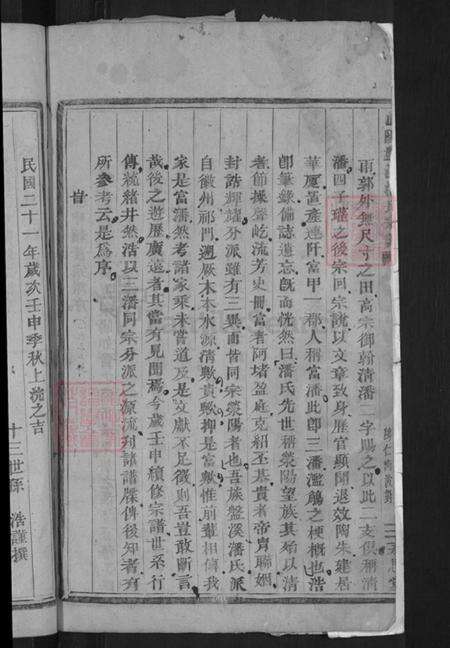 而郭外無尺寸之田高宗御翰清潘二字賜之以此二支俱稱清
潘四子瑾之後宗回宗說以文章致身歷官顯閎退效陶朱建居
華厦置產連阡富甲一郡人稱富潘此卽三潘濫觴之梗槪也浩
卽筆錄備誌遺忘旣而恍然曰潘氏先世稱滎陽望族其始以清
耄節操聲屹流芳史冊富者阿堵盈庭克紹丕基貴者帝胄聯姻
封誥輝煌分派雖有三異而皆同宗滎陽者也吾族盤溪潘氏派
自徽州祁門遡厥本本水源清歟貴歟抑是富歟惟前輩相傳我
家是富潘然考諸家乘未嘗道及是文獻不足徵則吾豈敢斷言
哉後之遊歷廣遠者其當有見聞焉今歲壬申續修宗譜世系行
傳統緒井然浩以三潘同宗分派之源流列諸譜牒俾後知者有
所參考云是爲序
旹
民國二十一年歲次壬申季秋上浣之吉
十三世孫 浩謹撰